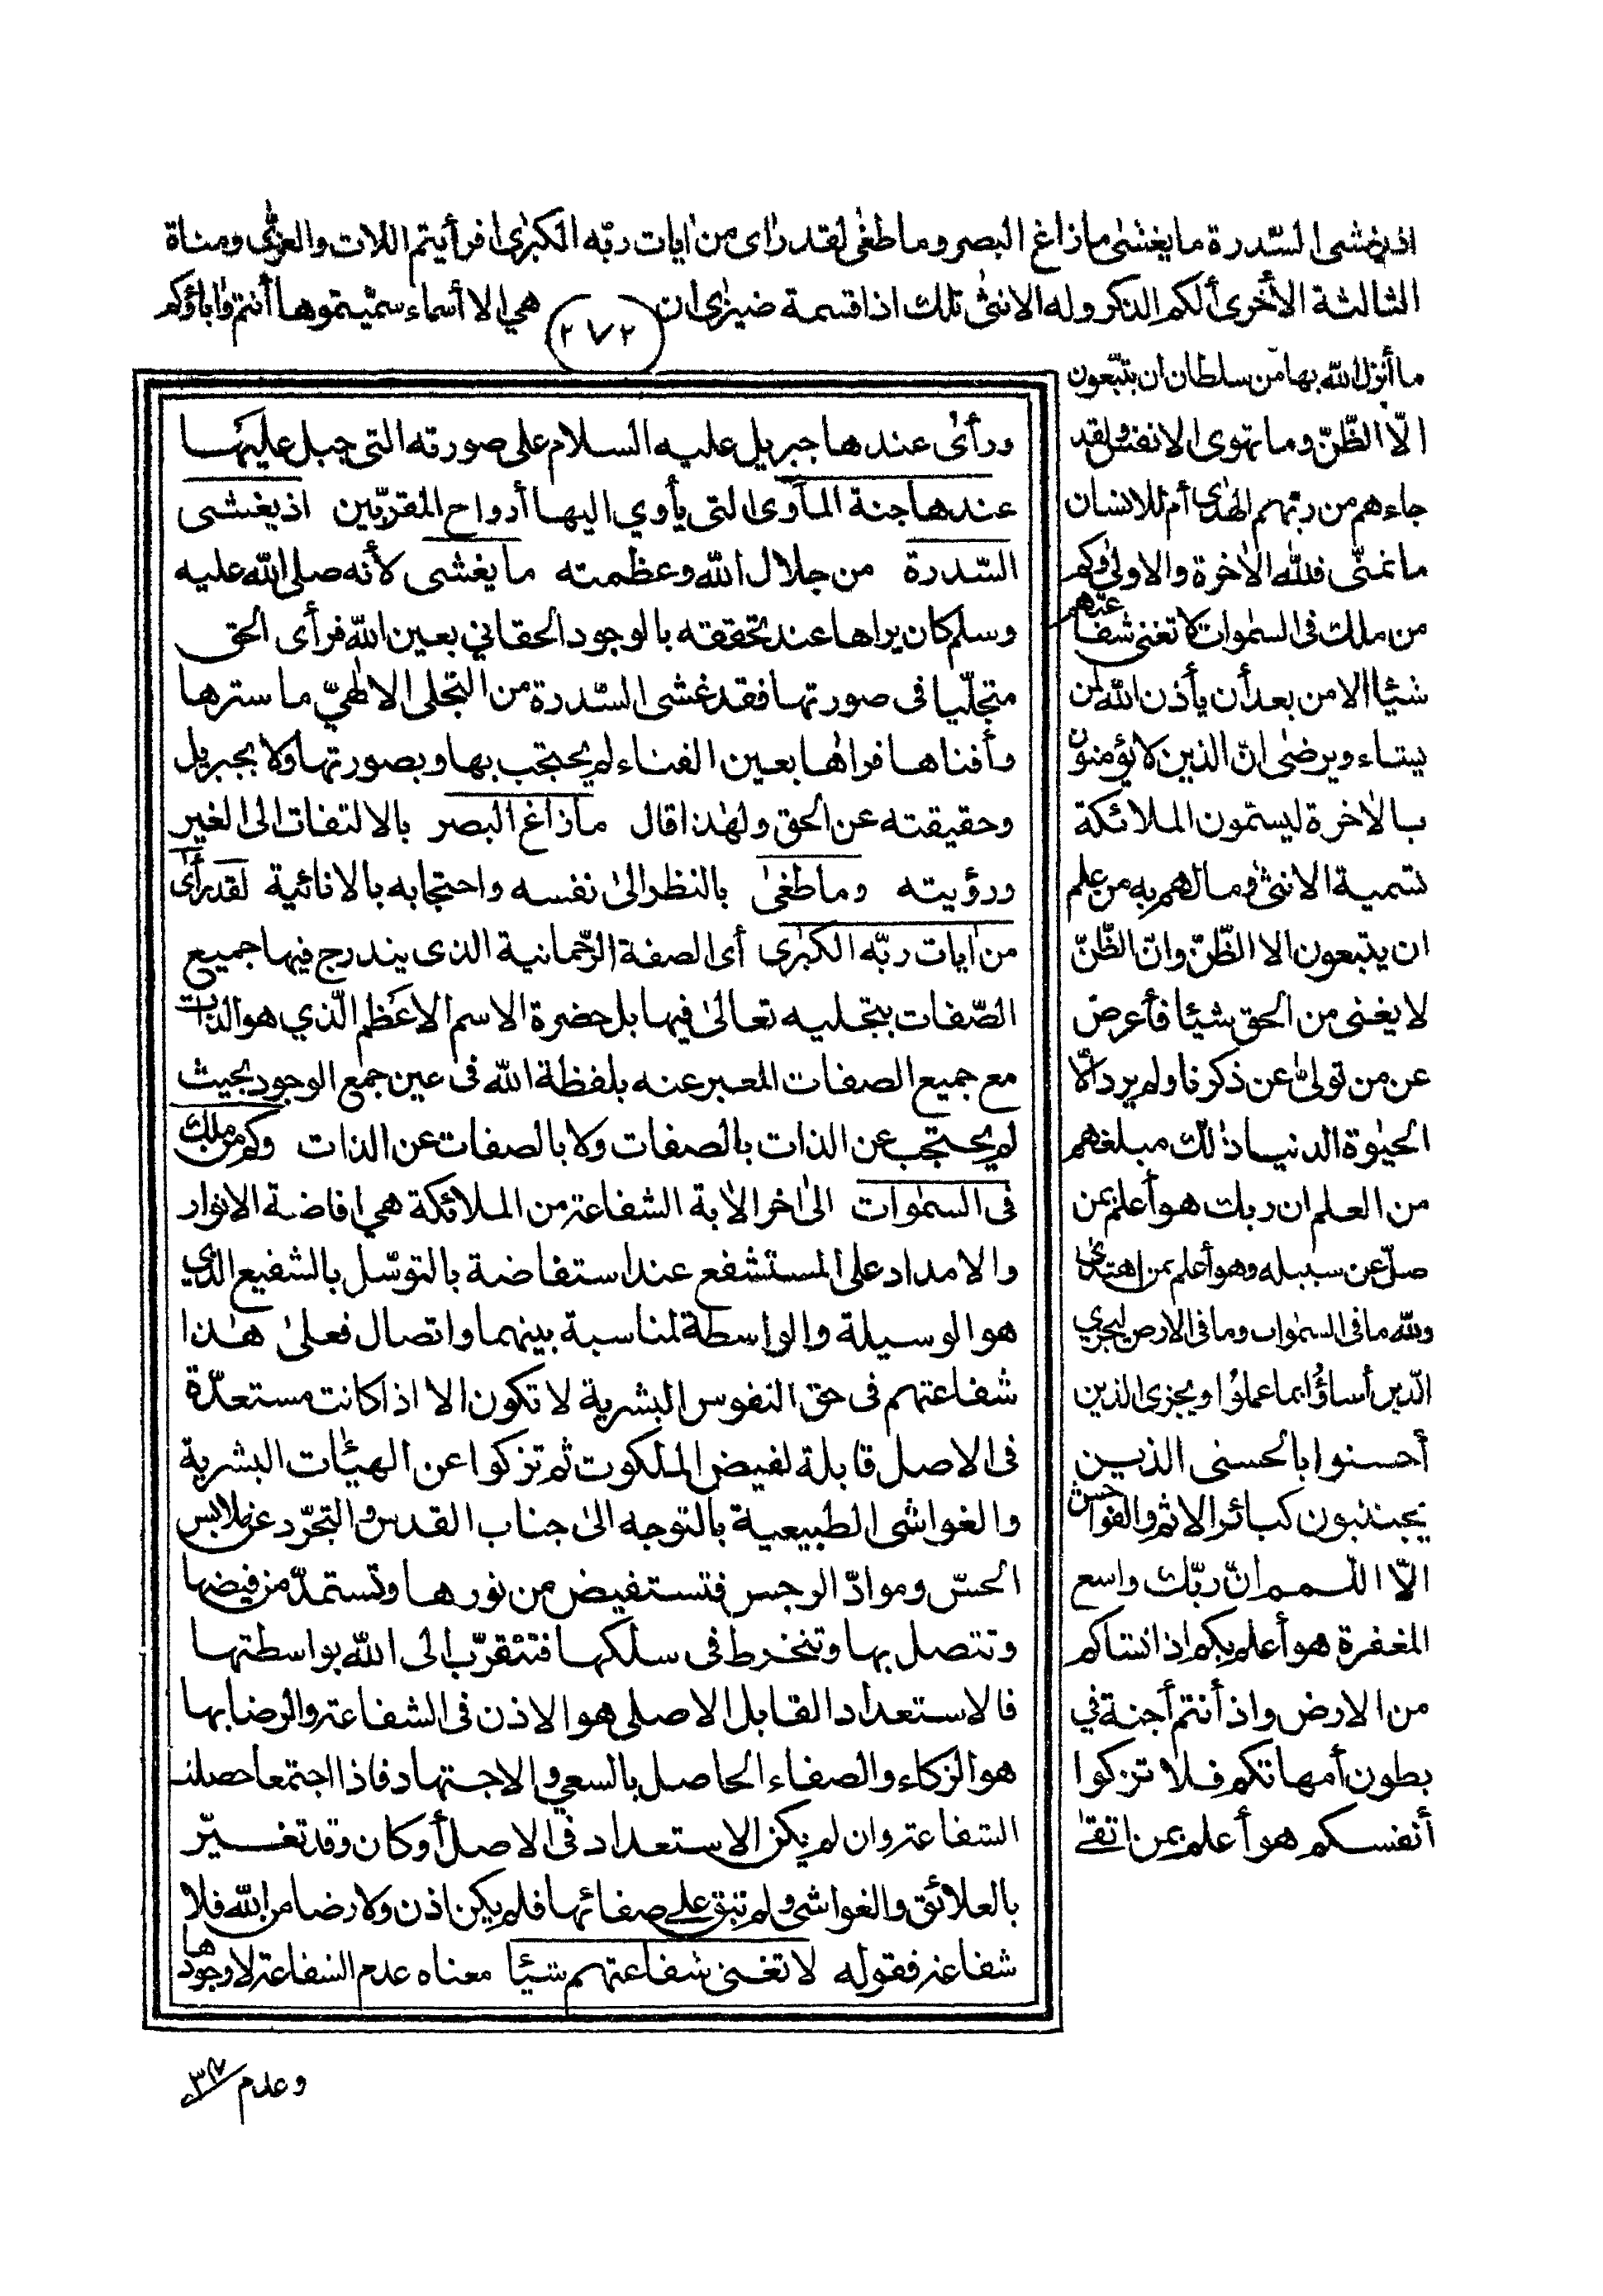 اذ يغشى السّدرة ما يغشىٰ ما زاغ البصر وما طغىٰ لقد راٰى من اٰيات ربّه الكبرىٰ افرأيتم اللات والعزّٰى ومناة
الثالثة الأخرى ألكم الذكر وله الانثىٰ تلك اذا قسمة ضيزٰى ان هي الا أسماء سمّيتموها أنتم واٰباؤكم
٢٧٢
ما أنزل الله بها من سلطان ان يتّبعون
الّا الظّنّ وما تهوى الانفس ولقد
جاءهم من ربّهم الهدٰى أم للانسان
ما تمنّى فللّٰه الاٰخرة والاولىٰ وكم
من ملك فى السمٰوات لا تغنى شفاعتهم
شيئا الا من بعد أن يأذن الله لمن
يشاء ويرضىٰ انّ الذين لا يؤمنون
بالاٰخرة ليسمّون الملائكة
تسمية الانثىٰ وما لهم به من علم
ان يتبعون الا الظّنّ وانّ الظّنّ
لا يغنى من الحق شيئا فأعرض
عن من تولىّٰ عن ذكرنا ولم يرد الّا
الحيٰوة الدنيا ذٰلك مبلغهم
من العلم ان ربك هو أعلم بمن
ضلّ عن سبيله وهو أعلم بمن اهتدٰى
ولله ما فى السمٰوات وما فى الارض ليجزي
الّذين أساؤُا بما عملوُا ويجزى الذين
أحسنوا بالحسنى الذين
يجتنبون كبائر الاثم والفواحش
الّا اللمم انّ ربّك واسع
المغفرة هو أعلم بكم اذ انشاكم
من الارض واذ أنتم أجنة في
بطون أمهاتكم فلا تزكوا
أنفسكم هو أعلم بمن اتقىٰ
ورأىٰ عندها جبريل عليه السلام على صورته التى جبل عليها
عندها جنة المأوى التى يأوي اليها أرواح المقرّبين اذ يغشى
السّدرة من جلال الله وعظمته ما يغشى لأنه صلى الله عليه
وسلم كان يراها عند تحققه بالوجود الحقاني بعين الله فرأى الحق
متجلّيا فى صورتها فقد غشى السّدرة من التجلى الالٰهيّ ما سترها
وأفناها فراٰها بعين الفناء لم يحتجب بها وبصورتها ولا بجبريل
وحقيقته عن الحق ولهٰذا قال ما زاغ البصر بالالتفات الى الغير
ورؤيته وما طغىٰ بالنظر الىٰ نفسه واحتجابه بالانائية لقد رأى
من اٰيات ربّه الكبرٰى أى الصفة الرّحمانية الذى يندرج فيها جميع
الصّفات بتجليه تعالىٰ فيها بل حضرة الاسم الاعظم الّذي هو الذات
مع جميع الصفات المعبر عنه بلفظة الله فى عين جمع الوجود بحيث
لم يحتجب عن الذات بالصفات ولا بالصفات عن الذات وكم من ملك
فى السمٰوات الىٰ اٰخر الاٰية الشفاعة من الملائكة هي افاضة الانوار
والامداد على المستشفع عند استفاضة بالتوسّل بالشفيع الذي
هو الوسيلة والواسطة لمناسبة بينهما واتصال فعلىٰ هٰذا
شفاعتهم فى حق النفوس البشرية لا تكون الا اذا كانت مستعدّة
فى الاصل قابلة لفيض الملكوت ثم تزكوا عن الهيئات البشرية
والغواشى الطبيعية بالتوجه الىٰ جناب القدس والتجرّد عن ملابس
الحسّ وموادّ الرجس فتستفيض من نورها وتستمدّ من فيضها
وتتصل بها وتنخرط فى سلكها فتتقرّب الى الله بواسطتها
فالاستعداد القابل الاصلى هو الاذن فى الشفاعة والرضا بها
هو الزكاء والصفاء الحاصل بالسعي والاجتهاد فاذا اجتمعا حصلت
الشفاعة وان لم يكن الاستعداد فى الاصل أو كان وقد تغيّر
بالعلائق والغواشى ولم تبق على صفائها فلم يكن اذن ولا رضا من الله فلا
شفاعة فقوله لا تغنى شفاعتهم شيئا معناه عدم الشفاعة لا وجودها
وعدم